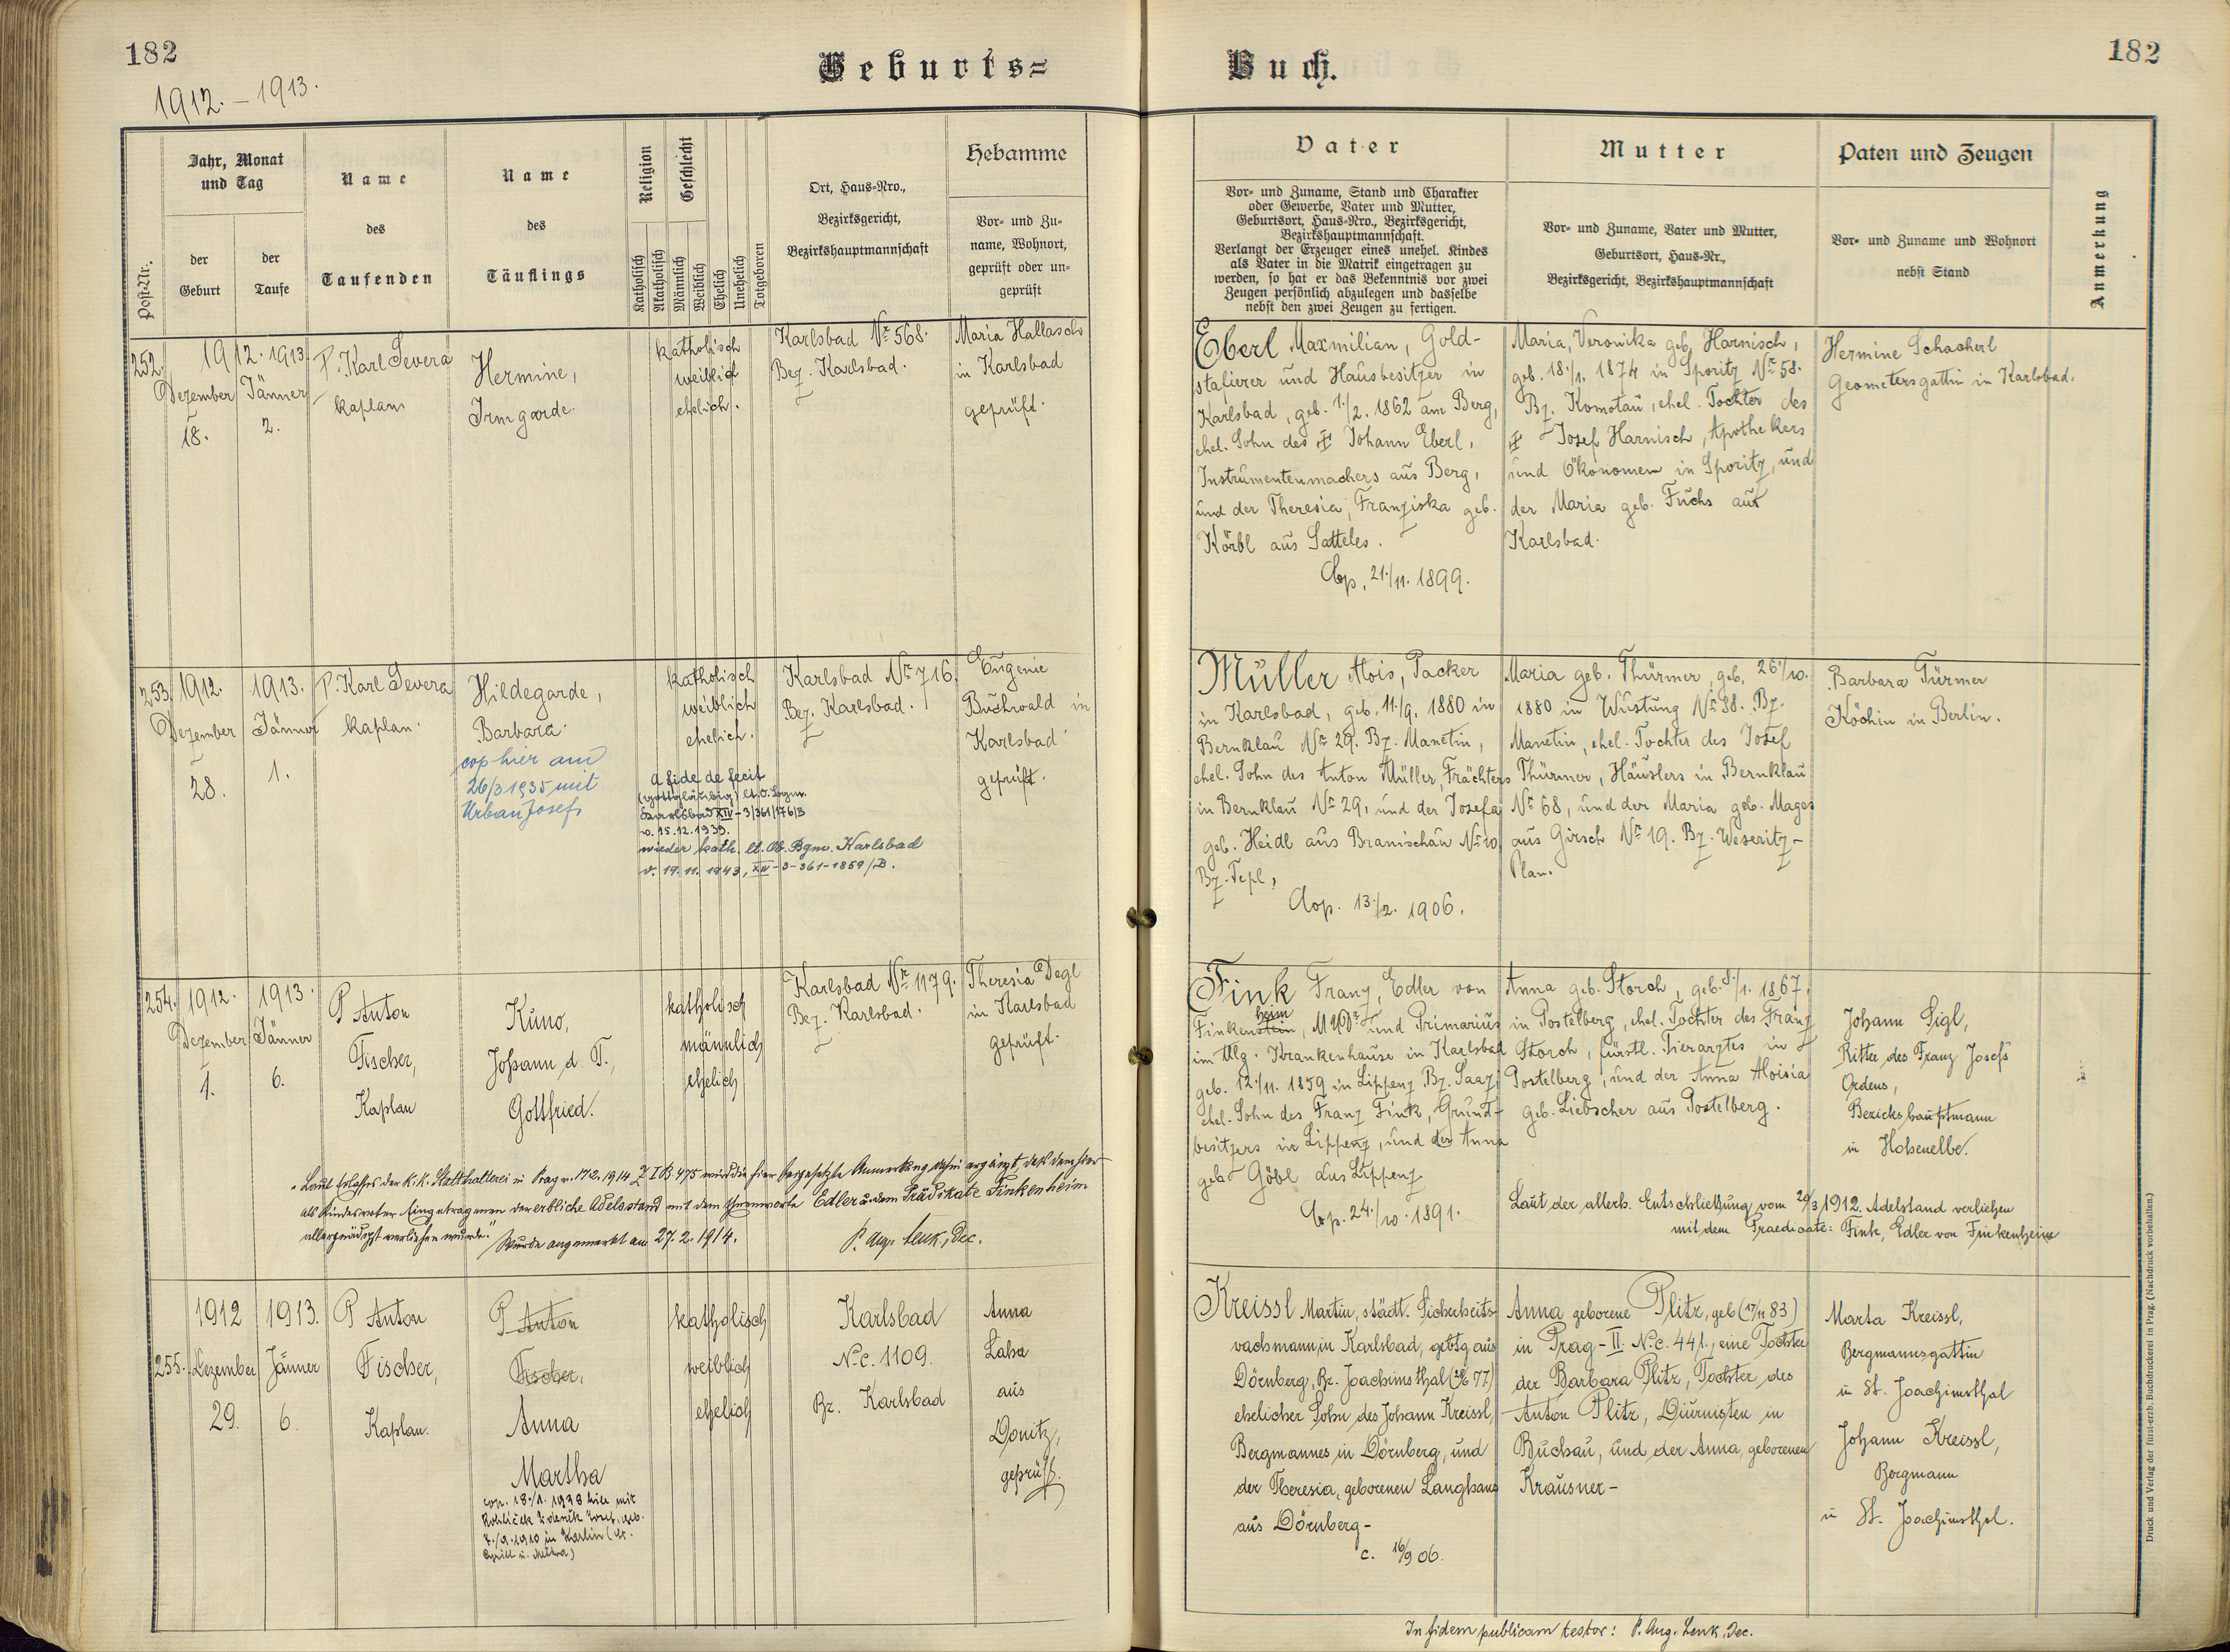 182
Geburts=
Buch.
182
1912. – 1913.
Jahr, Monat
und Tag
Name
des
Taufenden
Name
des
Täuflings
Religion
Geschlecht
Ort, Haus=Nro.,
Bezirksgericht,
Bezirkshauptmannschaft
Hebamme
Vor= und Zu=
name, Wohnort,
geprüft oder un=
geprüft
Post=Nr.
der
Geburt
der
Taufe
Katholisch
Akatholisch
Männlich
Weiblich
Ehelich
Unehelich
Totgeboren
Vater
Vor= und Zuname, Stand und Charakter
oder Gewerbe, Vater und Mutter,
Geburtsort, Haus=Nro., Bezirksgericht,
Bezirkshauptmannschaft.
Verlangt der Erzeuger eines unehel. Kindes
als Vater in die Matrik eingetragen zu
werden, so hat er das Bekenntnis vor zwei
Zeugen persönlich abzulegen und dasselbe
nebst den zwei Zeugen zu fertigen.
Mutter
Vor= und Zuname, Vater und Mutter,
Geburtsort, Haus=Nr.,
Bezirksgericht, Bezirkshauptmannschaft
Paten und Zeugen
Vor= und Zuname und Wohnort
nebst Stand
Anmerkung
252.
1912.
Dezember
18.
1913.
Jänner
2.
P. Karl Severa
kaplan
Hermine,
Irmgarde.
katholisch
weiblich
ehelich.
Karlsbad Nr 568.
Bez. Karlsbad.
Maria Hallasch
in Karlsbad
geprüft.
Eberl Maxmilian, Gold-
stafierer und Hausbesitzer in
Karlsbad, geb. 1./2. 1862 am Berg,
ehel. Sohn des ‡ Johann Eberl,
Instrumentenmachers aus Berg,
und der Theresia, Franziska geb.
Körbl aus Satteles.
Cop. 21./11. 1899.
Maria, Veronika geb. Harnisch,
geb. 18./1. 1874 in Sporitz Nr 58.
Bz. Komotau, ehel. Tochter des
‡ Josef Harnisch, Apothekers
und Ökonomen in Sporitz, und
der Maria geb. Fuchs aus
Karlsbad.
Hermine Schacherl
Geometersgattin in Karlsbad.
253.
1912.
Dezember
28.
1913.
Jänner
1.
P. Karl Severa
kaplan.
Hildegarde,
Barbara.
cop hier am
26/3 1935 mit
Urban Josef
katholisch
weiblich
ehelich.
a fide defecit
(gottgläubig) lt. O. Bgm.
Karlsbad XIV - 3/361/176/B
v. 15.12.1939.
wieder kath. lt. Ob. Bgm. Karlsbad
v. 19. 11. 1943, XIV - 3 - 361 - 1859/B.
Karlsbad Nr 716.
Bez. Karlsbad.
Eugenie
Buchwald in
Karlsbad
geprüft.
Müller Alois, Packer
in Karlsbad, geb. 11./9. 1880 in
Bernklau Nr 29. Bz. Manetin,
ehel. Sohn des Anton Müller, Frächters
in Bernklau Nr 29, und der Josefa
geb. Heidl aus Branischau Nr 10
Bz. Tepl,
Cop. 13./2. 1906.
Maria geb. Thürmer, geb. 26./10.
1880 in Wüstung Nr 38. Bz.
Manetin, ehel. Tochter des Josef
Thürmer, Häuslers in Bernklau
Nr 68, und der Maria geb. Mages
aus Girsch Nr 19. Bz. Weseritz-
Plan.
Barbara Türmer
Köchin in Berlin.
254.
1912.
Dezember
1.
1913.
Jänner
6.
P Anton
Fischer,
Kaplan
Kuno,
Johann d. T.,
Gottfried.
katholisch
männlich
ehelich
Karlsbad Nr 1179.
Bez. Karlsbad.
Theresia Degl
in Karlsbad
geprüft.
Fink Franz, Edler von
Finkenstein heim, MUDr und Primarius
im Allg. Krankenhause in Karlsbad
geb. 12./11. 1859 in Lippenz Bz. Saaz,
ehel. Sohn des Franz Fink, Grund-
besitzers in Lippenz, und der Anna
geb. Göbl aus Lippenz
Cop. 24./10. 1891.
Anna geb. Storch, geb. 8./1. 1867.
in Postelberg, ehel. Tochter des Franz
Storch, fürstl. Tierarztes in
Postelberg, und der Anna Aloisia
geb. Liebscher aus Postelberg.
Johann Sigl,
Ritter des Franz Josefs
Ordens,
Bezirkshauptmann
in Hohenelbe.
Laut der allerh. Entschließung vom 29/3 1912. Adelstand verliehen
mit dem Praedicate: Fink, Edler von Finkenheim
„Laut Erlasses der k.k. Statthalterei in Prag v. 17.2.1914 Z I B 475 wird die hier beigesetzte Anmerkung dahin ergänzt, daß dem hier
als Kindesvater Eingetragenen der erbliche Adelsstand mit dem Ehrenworte Edler u. dem Prädikate Finkenheim
allergnädigst verliehen wurde."
Wurde angemerkt am 27.2.1914.
P. Aug. Lenk, Dec.
255.
1912
Dezember
29.
1913.
Jänner
6.
P Anton
Fischer,
Kaplan.
P Anton
Fischer,
Anna
Martha
cop. 18./1. 1938 hier mit
katholisch
weiblich
ehelich
Karlsbad
N.c. 1109.
Bz. Karlsbad
Anna
Laha
aus
Donitz,
geprüft.
Kreissl Martin, städt. Sicherheits-
wachmann in Karlsbad, gebtg aus
Dörnberg, Bz. Joachimsthal
ehelicher Sohn des Johann Kreissl,
Bergmannes in Dörnberg, und
der Theresia, geborenen Langhans
aus Dörnberg-
c. 16/9 06.
Anna geborene Plitz, geb (17/11 83)
in Prag - II. N.c. 441., eine Tochter
der Barbara Plitz, Tochter des
Anton Plitz, Diurnisten in
Buchau, und der Anna, geborenen
Krausner -
Marta Kreissl,
Bergmannsgattin
in St. Joachimsthal
Johann Kreissl,
Bergmann
in St. Joachimsthal.
In fidem publicam testor: P. Aug. Lenk, Dec.
Druck und Verlag der fürst=erzb. Buchdruckerei in Prag. (Nachdruck vorbehalten.)